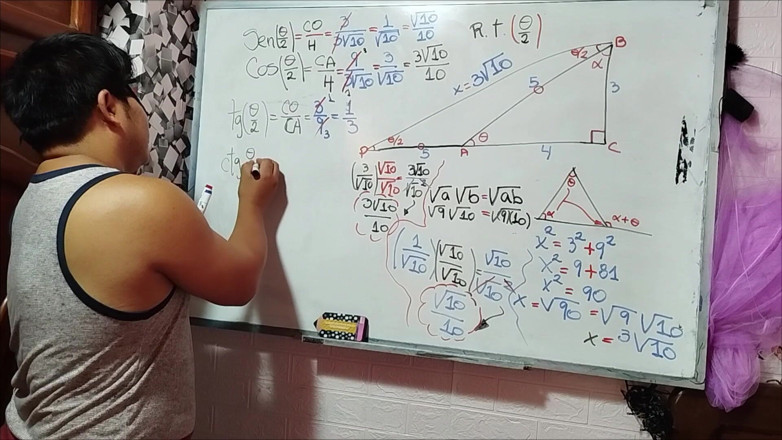 Sen(θ/2) = CO/H = 3/3√10 = 1/√10 = √10/10
R.T. (θ/2)
Cos(θ/2) = CA/H = 9/3√10 = 3/√10 = 3√10/10
tg(θ/2) = CO/CA = 3/9 = 1/3
ctg θ
B
θ/2
α
x = 3√10
5
3
θ/2
θ
P
5
A
4
C
(3/√10)(√10/√10) = 3√10/√10²
3√10/10
√a √b = √ab
√9 √10 = √9(10)
θ
α
α+θ
(1/√10)(√10/√10) = √10/√10²
√10/10
x² = 3² + 9²
x² = 9 + 81
x² = 90
x = √90 = √9 √10
x = 3√10